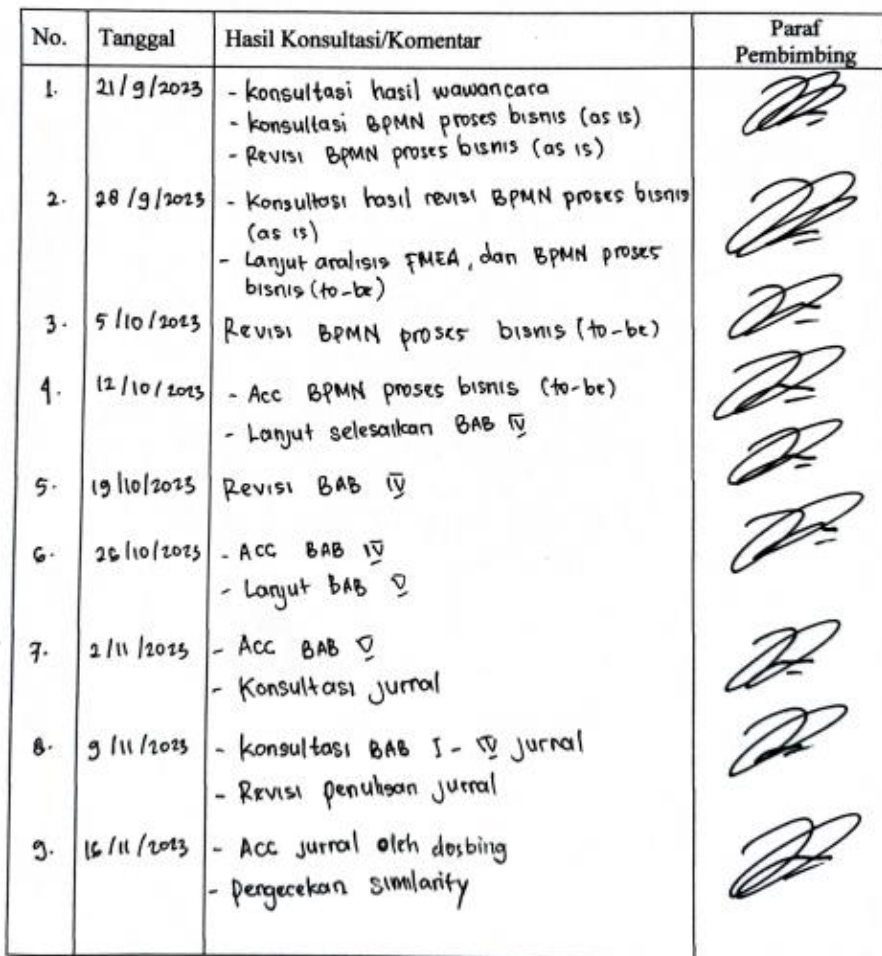 No. Tanggal Hasil Konsultasi/Komentar Paraf
Pembimbing
1. 21/9/2023 - konsultasi hasil wawancara
- konsultasi BPMN proses bisnis (as is)
- Revisi BPMN proses bisnis (as is)
2. 28/9/2023 - Konsultasi hasil revisi BPMN proses bisnis
(as is)
- Lanjut analisis FMEA, dan BPMN proses
bisnis (to-be)
3. 5/10/2023 Revisi BPMN proses bisnis (to-be)
4. 12/10/2023 - Acc BPMN proses bisnis (to-be)
- Lanjut selesaikan BAB IV
5. 19/10/2023 Revisi BAB IV
6. 26/10/2023 - Acc BAB IV
- Lanjut BAB V
7. 2/11/2023 - Acc BAB V
- Konsultasi jurnal
8. 9/11/2023 - konsultasi BAB I - IV jurnal
- Revisi penulisan jurnal
9. 16/11/2023 - Acc jurnal oleh dosbing
- pengecekan similarity